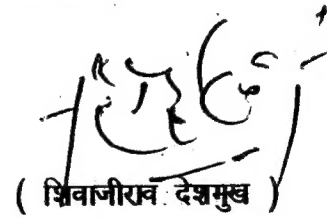 ( शिवाजीराव देशमुख )